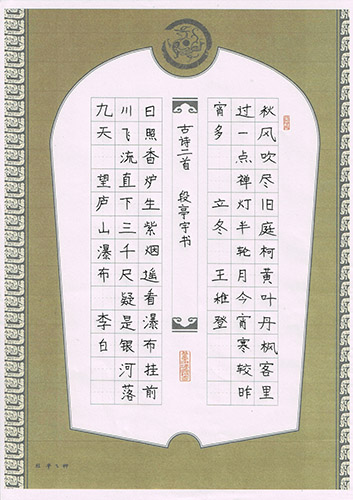 秋风吹尽旧庭柯黄叶丹枫客里
过一点禅灯半轮月今宵寒较昨
宵多 立冬 王稚登
古诗二首 段亭宇书
日照香炉生紫烟遥看瀑布挂前
川飞流直下三千尺疑是银河落
九天 望庐山瀑布 李白